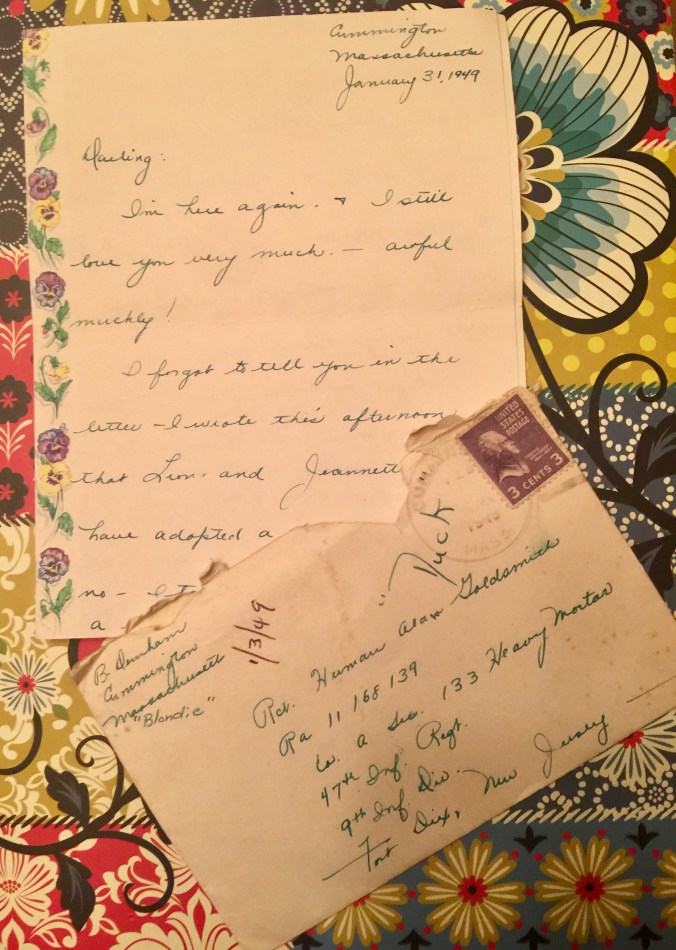 Cummington
Massachusetts
January 3, 1949
Darling:
I'm here again. & I still
love you very much. — awful
muchly!
I forgot to tell you in the
letter – I wrote this afternoon
that Leon and Jeannett
have adopted a
no –
a
UNITED
STATES
POSTAGE
3 CENTS 3
1949
MASS
"Duck
1/3/49
B. Dunham
Cummington
Massachusetts
"Blondie"
Rct. Human Alan Goldsmith
Ra 11 168 139
Co. a Sec. 133 Heavy Mortar
47th Inf. Regt.
9th Inf. Div.
Fort Dix, New Jersey